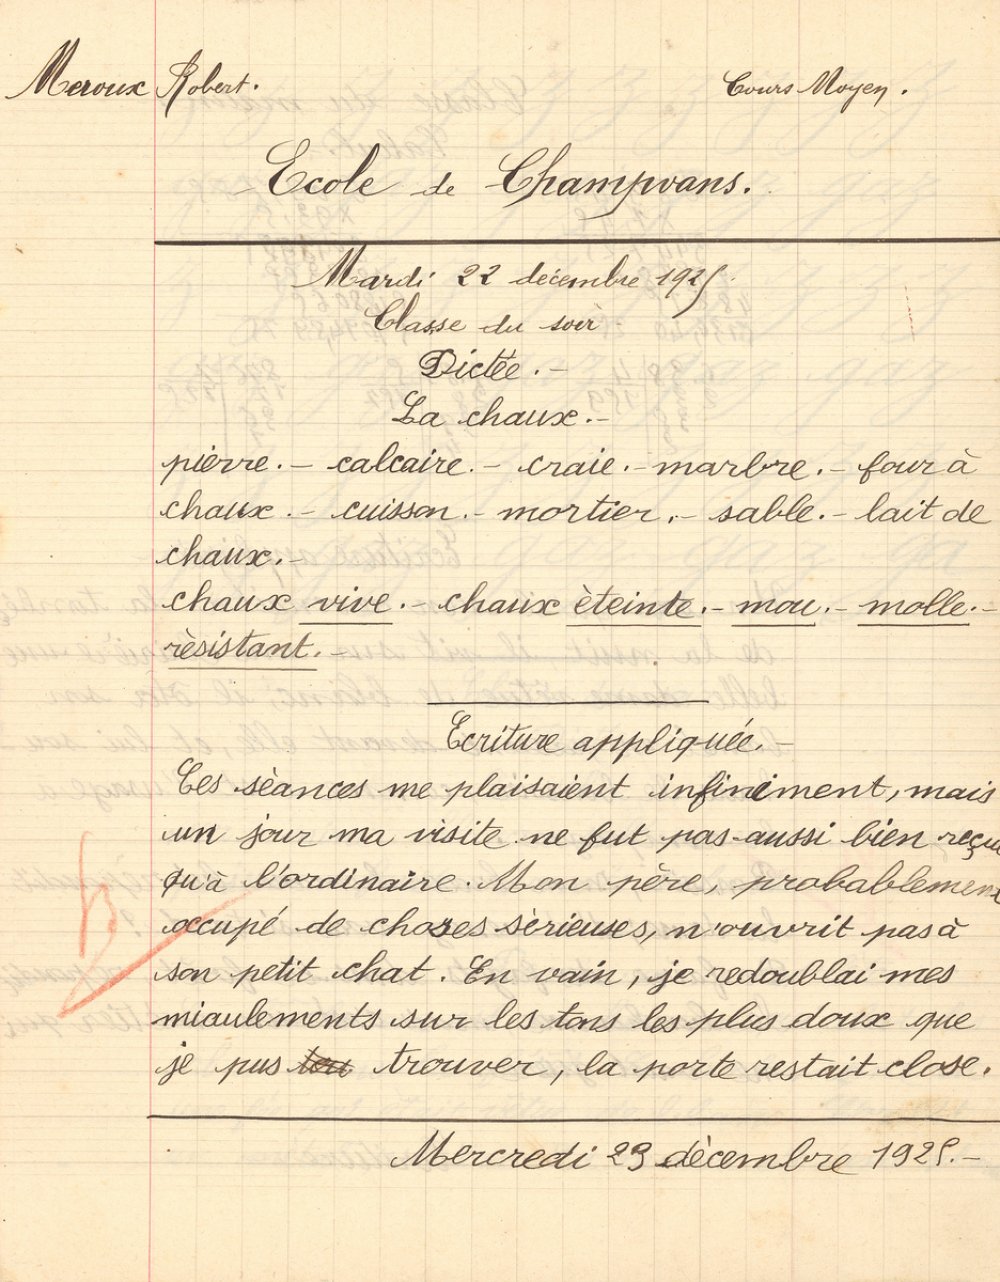 Meroux Robert.
Cours Moyen.
Ecole de Champvans.
Mardi 22 décembre 1925
Classe du soir
Dictée.-
La chaux.-
pierre.- calcaire.- craie.- marbre.- four à
chaux.- cuisson.- mortier.- sable.- lait de
chaux.-
chaux vive.- chaux èteinte.- mou.- molle.-
rèsistant.-
Ecriture appliquée.-
Ces sèances me plaisaient infiniment, mais
un jour ma visite ne fut pas aussi bien reçue
qu'à l'ordinaire. Mon père, probablement
occupé de choses sèrieuses, n'ouvrit pas à
son petit chat. En vain, je redoublai mes
miaulements sur les tons les plus doux que
je pus trouver, la porte restait close.
B
Mercredi 23 dècembre 1925.-